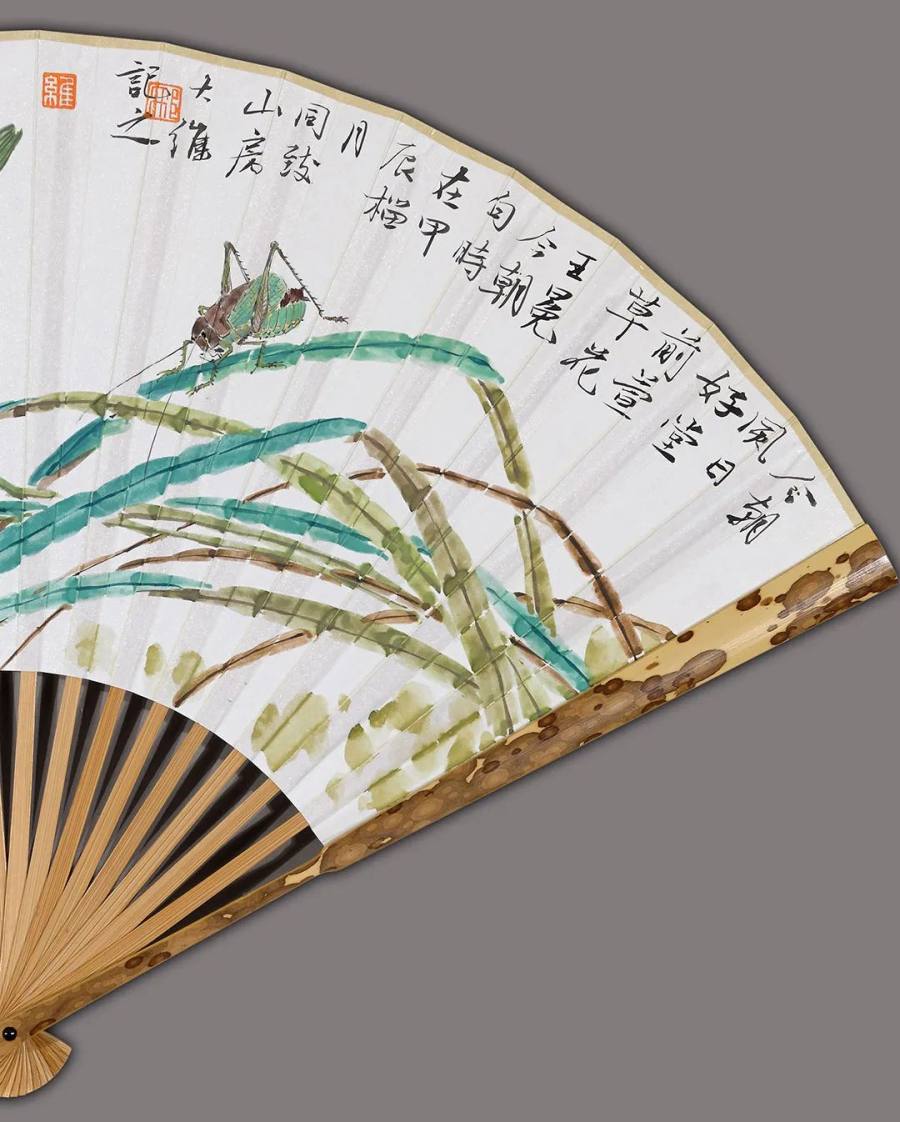 今朝
風日
好堂
前萱
草花
王冕
今朝
句時
在甲
辰榴
月
同致
山房
大維
記之
維